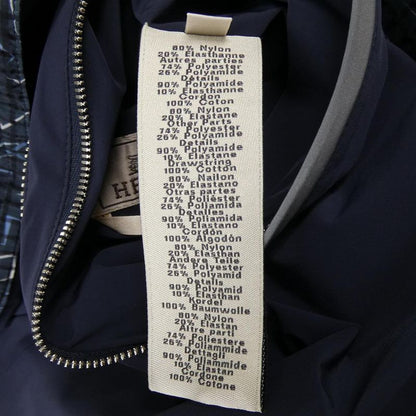 80% Nylon
20% Elasthanne
Autres parties
74% Polyester
26% Polyamide
Détails
90% Polyamide
10% Elasthanne
Cordon
100% Coton
80% Nylon
20% Elastane
Other Parts
74% Polyester
26% Polyamide
Details
90% Polyamide
10% Elastane
Drawstring
100% Cotton
80% Nailon
20% Elastano
Otras partes
74% Poliéster
26% Poliamida
Detalles
90% Poliamida
10% Elastano
Cordón
100% Algodón
80% Nylon
20% Elasthan
Andere Teile
74% Polyester
26% Polyamid
Details
90% Polyamid
10% Elasthan
Kordel
100% Baumwolle
80% Nylon
20% Elastan
Altre parti
74% Poliestere
26% Poliammide
Dettagli
90% Poliammide
10% Elastan
Cordone
100% Cotone
HE